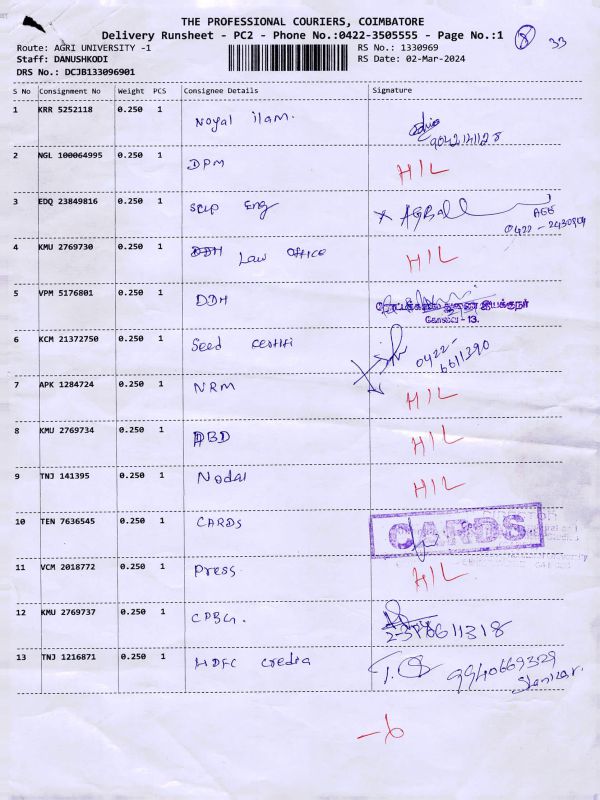 THE PROFESSIONAL COURIERS, COIMBATORE
Delivery Runsheet - PC2 - Phone No.:0422-3505555 - Page No.:1
8 33
Route: AGRI UNIVERSITY -1
RS No.: 1330969
Staff: DANUSHKODI
RS Date: 02-Mar-2024
DRS No.: DCJB133096901
S No Consignment No Weight PCS Consignee Details Signature
1 KRR 5252118 0.250 1 Noyal ilam.
2 NGL 100064995 0.250 1 DPM HIL
3 EDQ 23849816 0.250 1 Eng AGBall
AGB
0422 - 2430904
4 KMU 2769730 0.250 1 Law Office HIL
5 VPM 5176801 0.250 1 DDH
துணை இயக்குநர்
கோவை - 13.
6 KCM 21372750 0.250 1 Seed certifi 0422-
6611290
7 APK 1284724 0.250 1 NRM HIL
8 KMU 2769734 0.250 1 PBD HIL
9 TNJ 141395 0.250 1 Nodal HIL
10 TEN 7636545 0.250 1 CARDS CARDS
11 VCM 2018772 0.250 1 Press HIL
12 KMU 2769737 0.250 1 CPBG.
6611318
13 TNJ 1216871 0.250 1 HDFC Credia 9940669329
-6